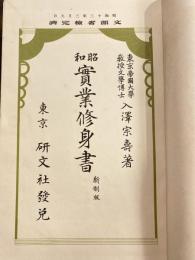 文部省檢定濟
東京帝國大學
教授文學博士
入澤宗壽著
昭和
實業修身書 新制版
東京 研文社發兌